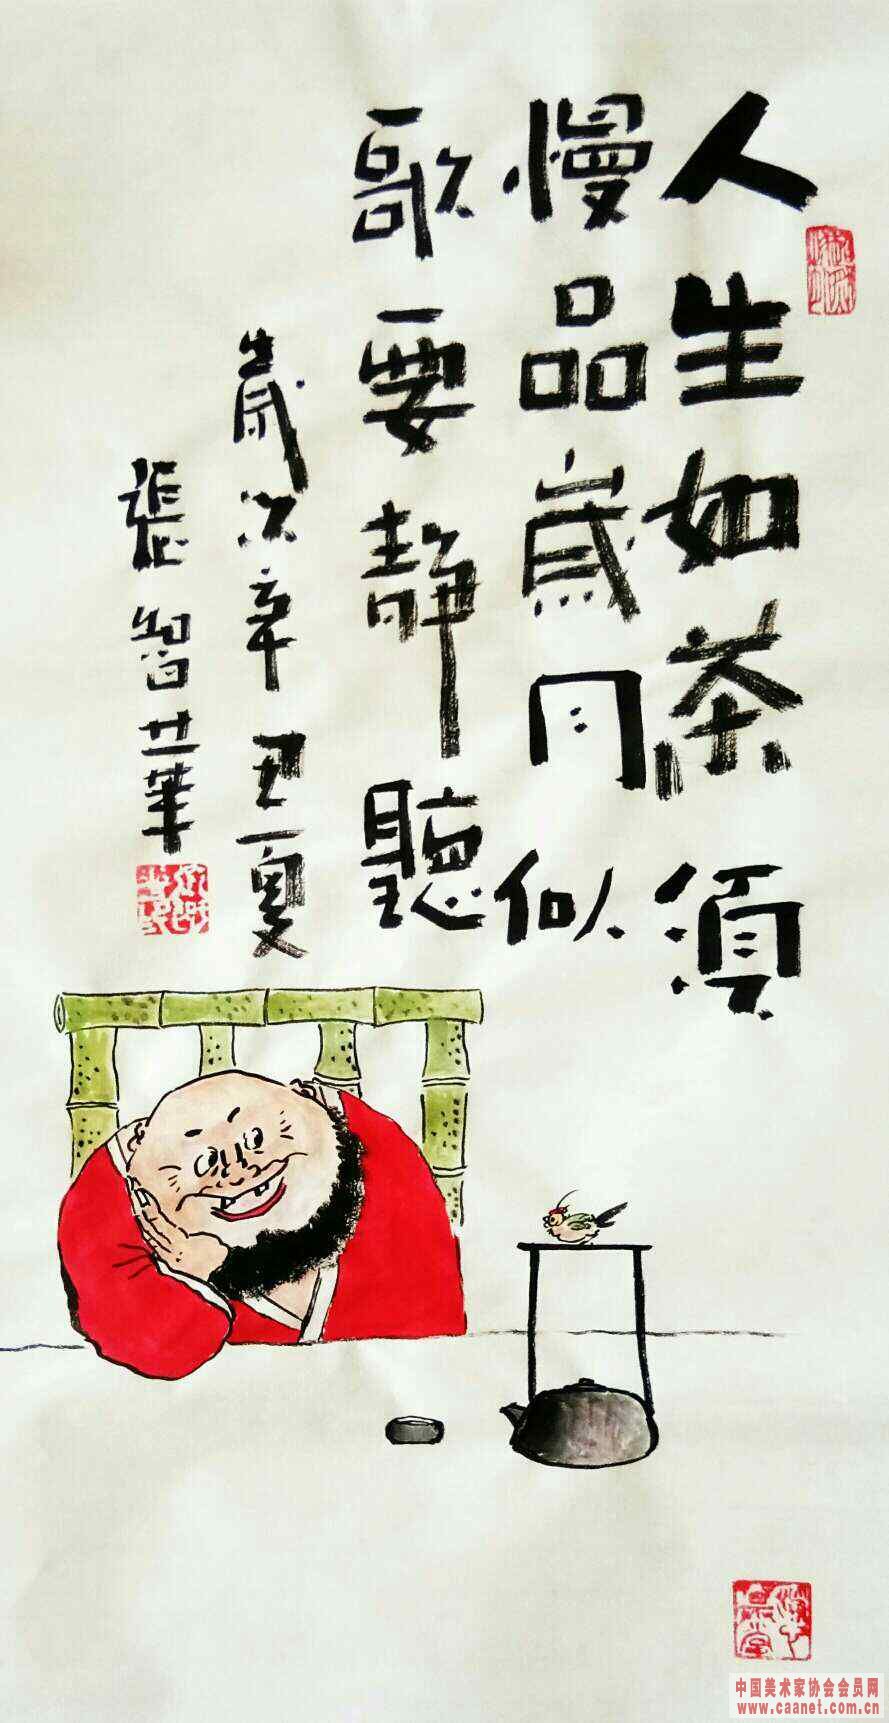 人生如茶须
慢品歲月似
歌要静聽
歲次辛丑夏
張智華
中国美术家协会会员网
www.caanet.com.cn